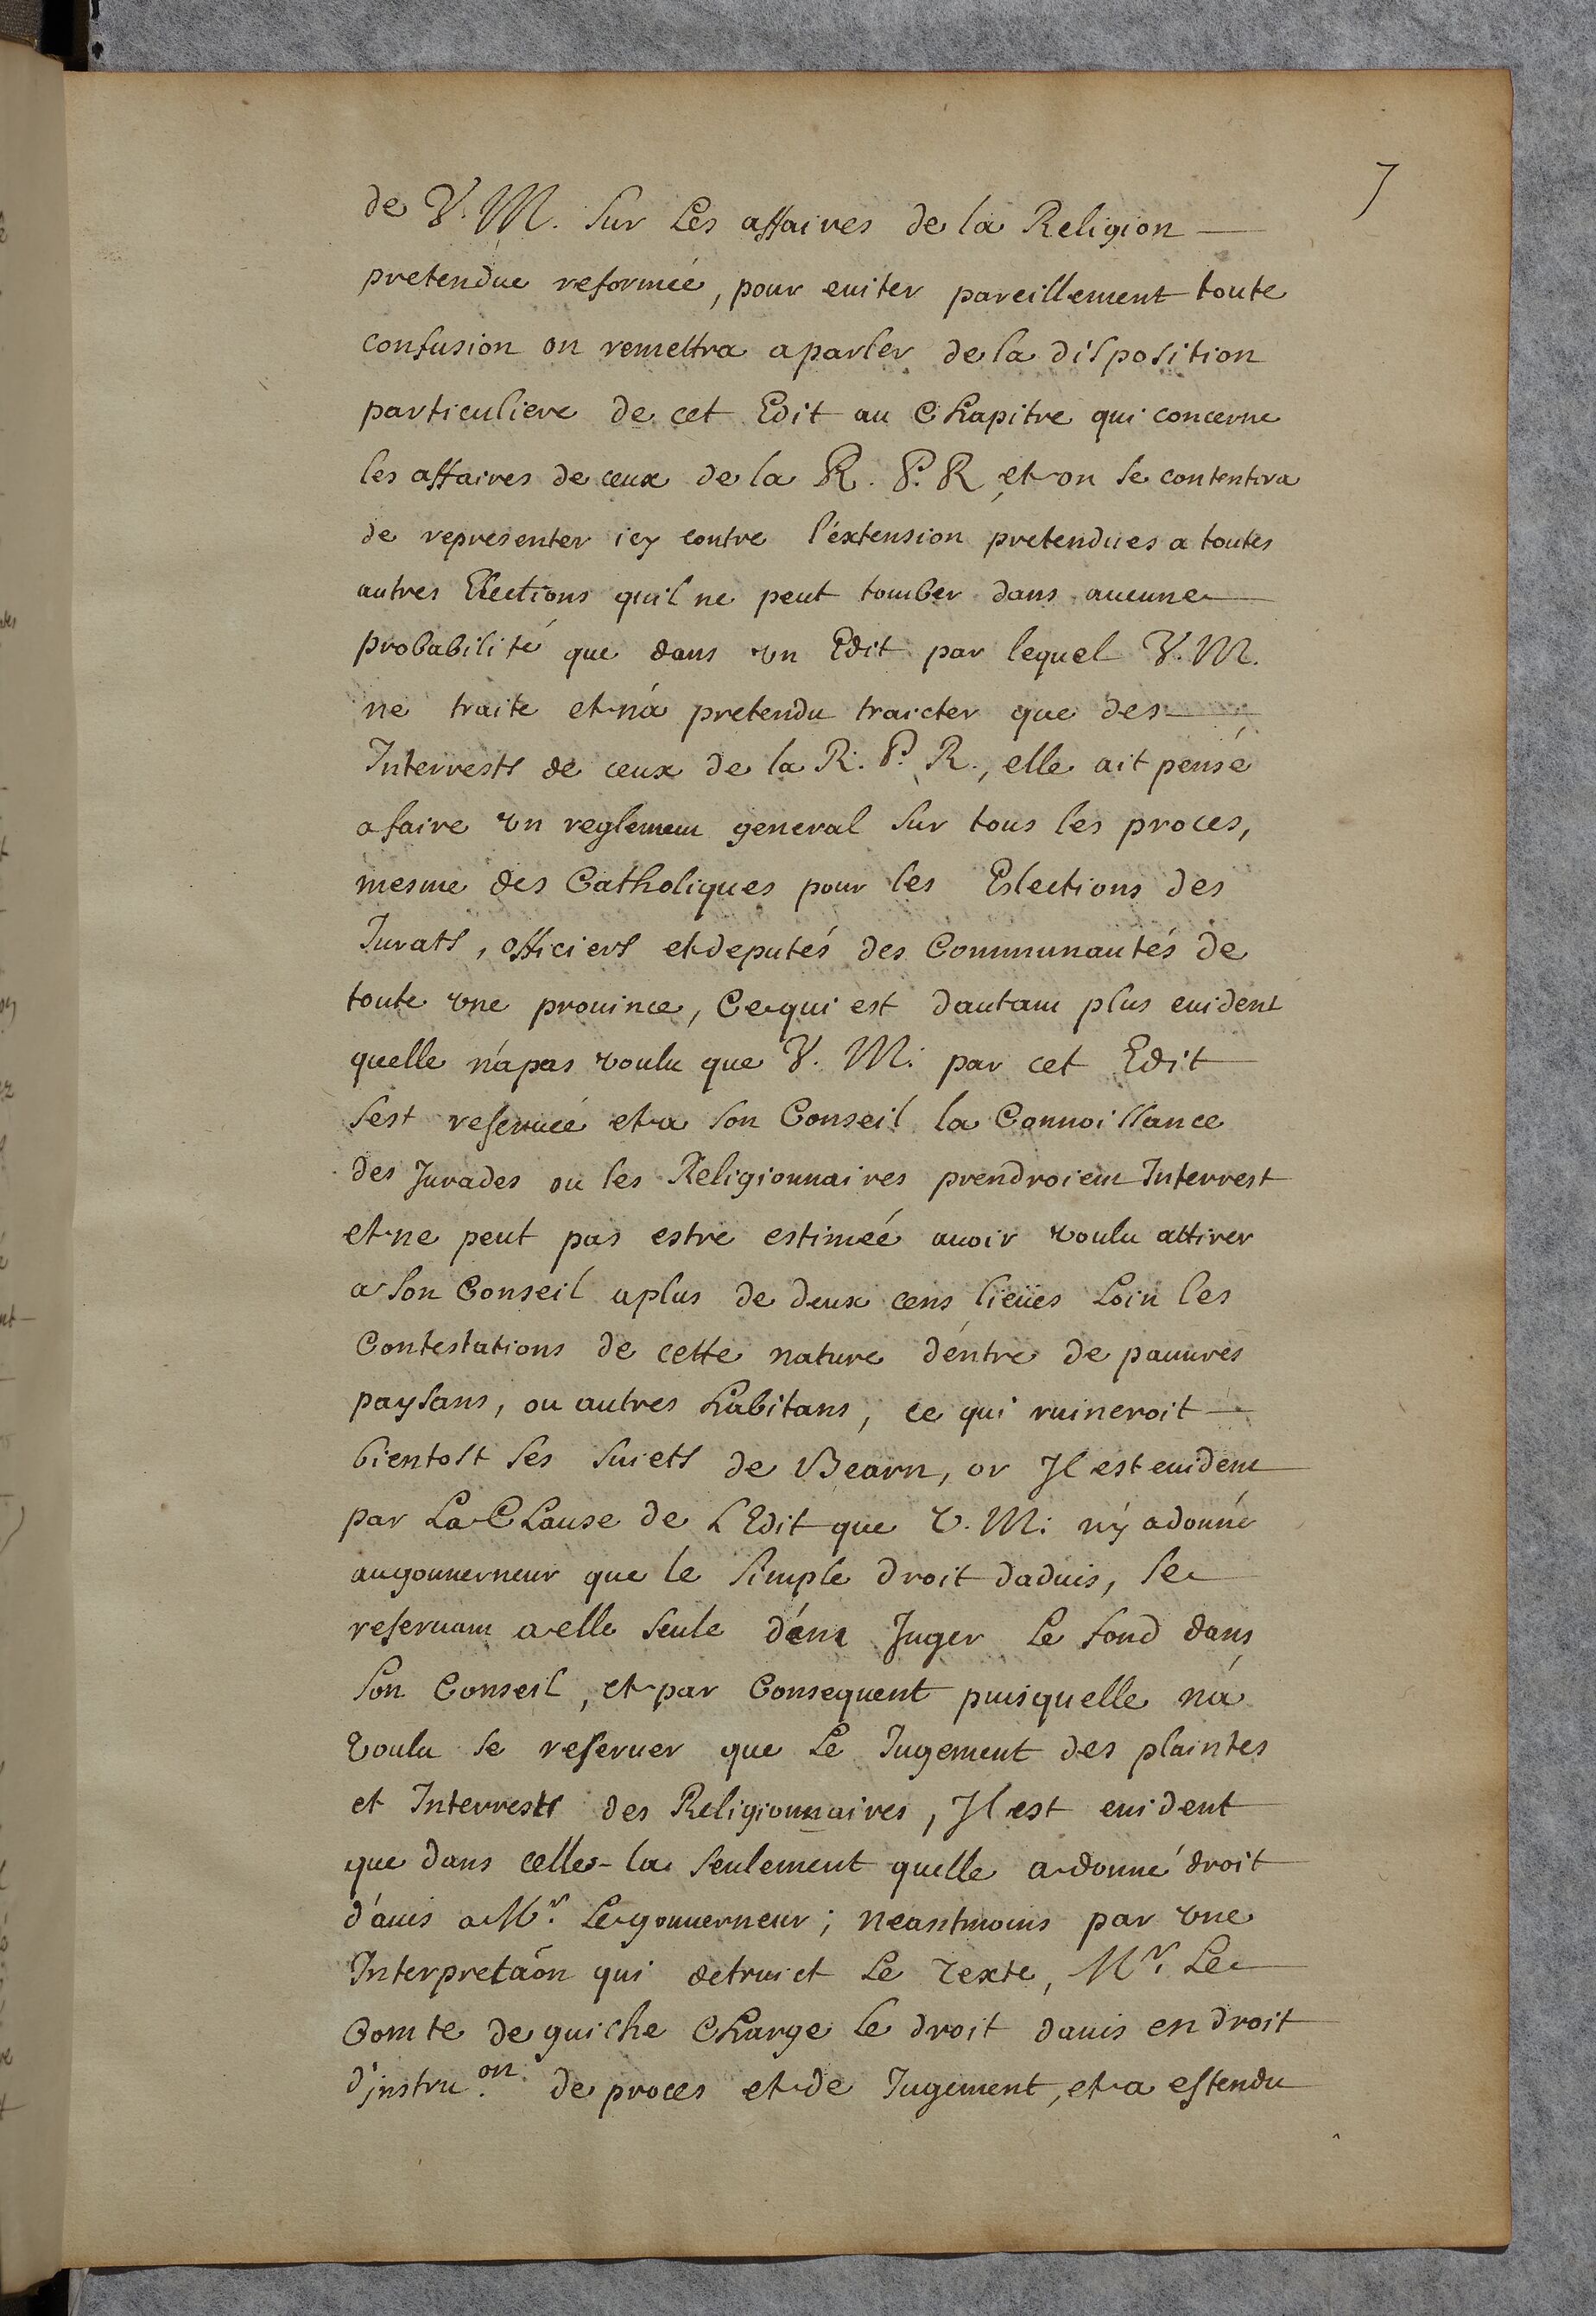 7
de V. M. sur les affaires de la Religion
pretendue reformée, pour euiter pareillement toute
confusion on remettra a parler de la disposition
particuliere de cet Edit au Chapitre qui concerne
les affaires de ceux de la R. P. R et on se contentera
de representer icy contre l'éxtension pretendües a toutes
autres Elections quil ne peut tomber dans aucune
probabilité que dans vn Edit par lequel V. M.
ne traite et n'a pretendu traicter que des
Interrests de ceux de la R. P. R., elle ait pensé
a faire vn reglement general sur tous les proces,
mesme des Catholiques pour les Eslections des
Jurats, officiers et deputés des Communautés de
toute vne prouince, Ce qui est dautant plus euident
quelle n'a pas voulu que V. M. par cet Edit
sest reseruée et a son Conseil la Connoissance
des Jurades ou les Religionnaires prendroient Interrest
et ne peut pas estre estimée auoir voulu attirer
a son Conseil a plus de deux cens lieües Loin les
Contestations de cette nature d'entre de pauures
paysans, ou autres habitans, ce qui ruineroit
bientost ses suiets de Bearn, or Il est euident
par La Clause de L'Edit que V. M. n'y a donné
au gouuerneur que le simple droit daduis, se
reseruant a elle seule d'en Juger Le fond dans
son Conseil, et par Consequent puisquelle n'a
voulu se reseruer que Le Jugement des plaintes
et Interrests des Religionnaires, Il est euident
que dans celles-la seulement quelle a donné droit
d'auis a Mr. Le gouuerneur; neantmoins par vne
Interpretaon qui detruict Le texte, Mr. Le
Comte de guiche Charge le droit dauis en droit
d'instruon. de proces et de Jugement, et a estendu